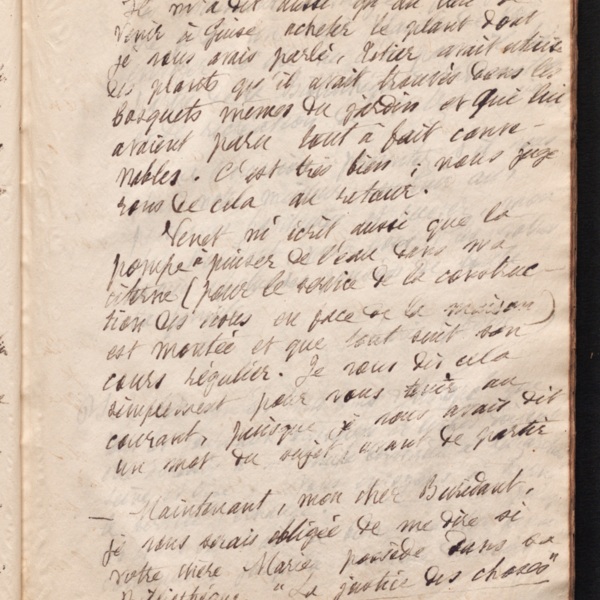 Il m'a dit aussi qu'au lieu de
venir à Guise acheter le plant dont
je vous avais parlé, Hotier avait utilisé
des plants qu'il avait trouvés dans les
bosquets mêmes du jardin et qui lui
avaient paru tout à fait conve-
nables. C'est très bien ; nous juge
rons de cela au retour.
Venet m'écrit aussi que la
pompe à puiser de l'eau dans ma
citerne (pour le service de la construc-
tion des murs en face de la maison)
est montée et que tout suit son
cours régulier. Je vous dis cela
simplement pour vous tenir au
courant, puisque je vous avais dit
un mot du sujet, avant de partir.
— Maintenant, mon cher Buridant,
je vous serais obligée de me dire si
votre chère Marie possède dans sa
Bibliothèque "La justice des choses"